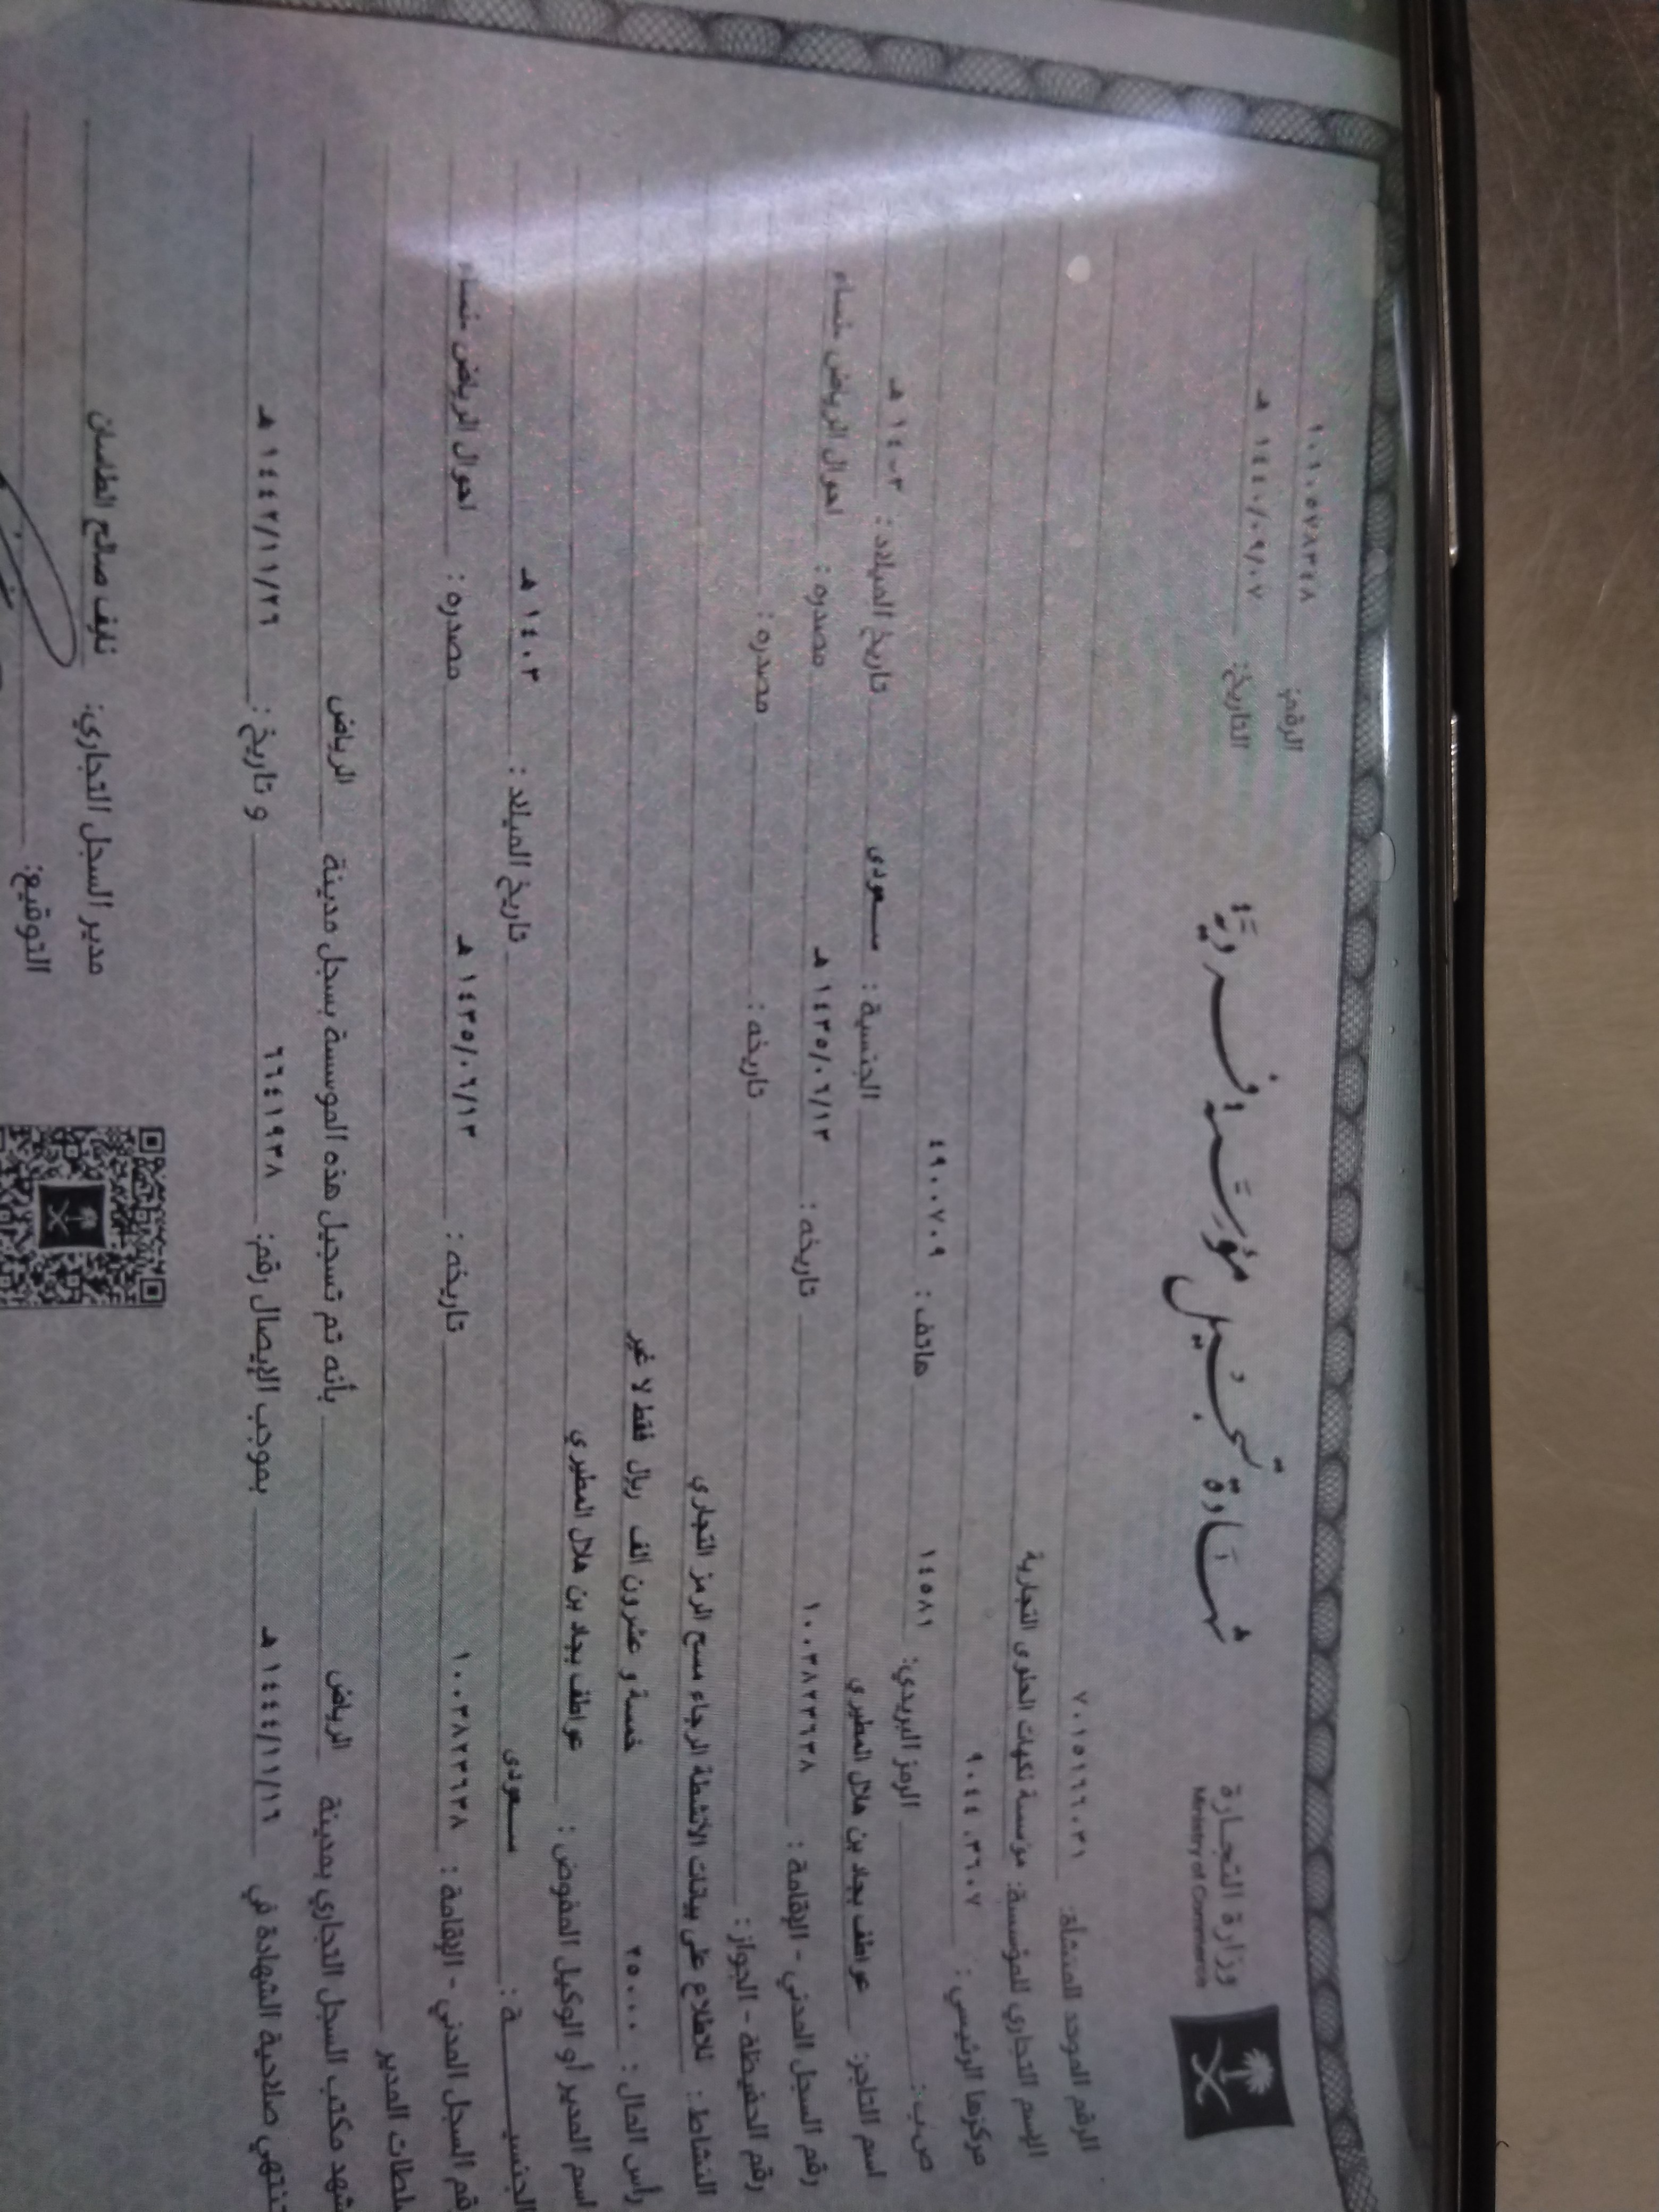 وزارة التجارة
Ministry of Commerce
شهادة تسجيل مؤسسة فردية
الرقم: ١٠١٠٥٧٨٣٤٨
التاريخ: ١٤٤٠/٠٩/٠٧ هـ
الرقم الموحد للمنشأة: ٧٠١٥١٦٦٠٣١
الإسم التجاري للمؤسسة: مؤسسة نكهات الحلوى التجارية
مركزها الرئيسي: ٩٠٤٤٠٣٦٠٧
ص.ب: الرمز البريدي: ١٤٥٨١ هاتف: ٤٩٠٠٧٠٩
اسم التاجر: عواطف بجاد بن هلال المطيري الجنسية: سعودى تاريخ الميلاد: ١٤٠٣ هـ
رقم السجل المدني - الإقامة: ١٠٠٣٨٢٣٦٣٨ تاريخه: ١٤٣٥/٠٦/١٣ هـ مصدره: احوال الرياض
رقم الحفيظة - الجواز: تاريخه: مصدره:
النشاط: للاطلاع على بيانات الأنشطة الرجاء مسح الرمز التجاري
رأس المال: ٢٥٠٠٠ خمسة و عشرون الف ريال فقط لا غير
اسم المدير أو الوكيل المفوض: عواطف بجاد بن هلال المطيري
الجنسيـــة: سعودى تاريخ الميلاد: ١٤٠٣ هـ
رقم السجل المدني - الإقامة: ١٠٠٣٨٢٣٦٣٨ تاريخه: ١٤٣٥/٠٦/١٣ هـ مصدره: احوال الرياض
سلطات المدير
يشهد مكتب السجل التجاري بمدينة الرياض بأنه تم تسجيل هذه المؤسسة بسجل مدينة الرياض
تنتهي صلاحية الشهادة في ١٤٤٤/١١/١٦ هـ بموجب الإيصال رقم: ٦٦٤١٩٣٨ و تاريخ: ١٤٤٢/١١/٢٦ هـ
مدير السجل التجاري: نايف صالح الطاسان
التوقيع: